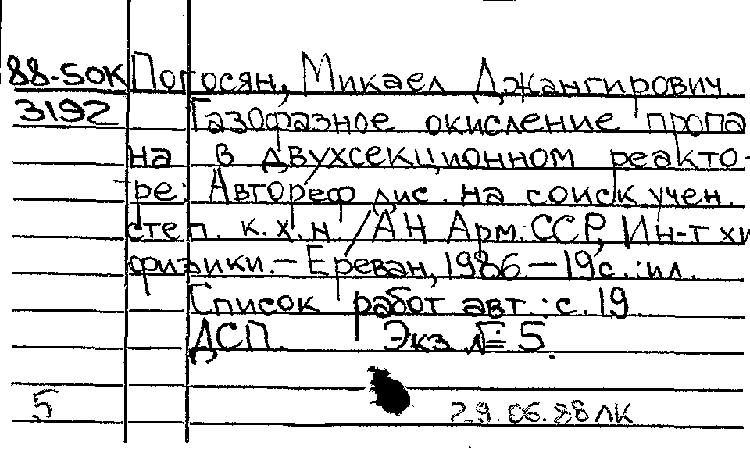 88-50К Погосян, Микаел Джангирович
3192 Газофазное окисление пропа
на в двухсекционном реакто-
ре: Автореф дис. на соиск учен.
степ. к.х.н. /АН Арм. ССР, Ин-т хи
физики. - Ереван, 1986 - 19с. : ил.
Список работ авт. : с. 19
ДСП. Экз. № 5.
5 29.06.88 ЛК